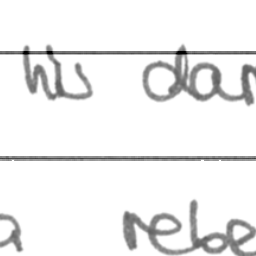 his dar
a rebe